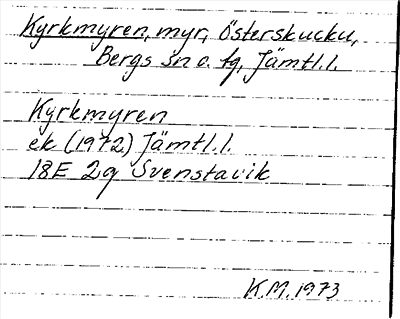 Kyrkmyren, myr, Österskucku,
Bergs sn o. fg, Jämtl.l.
Kyrkmyren
ek (1972) Jämtl.l.
18E 2g Svenstavik
K.M. 1973